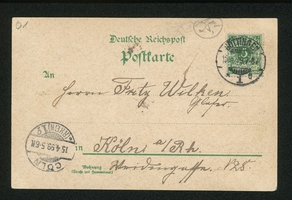 Deutsche Reichspost
Postkarte
An
Herrn Fritz Wilken
Glaser
in Köln a/Rh.
Wohnung
(Straße und Hausnummer)
Weidengasse 128
CÖLN
15.4.99.5-6N